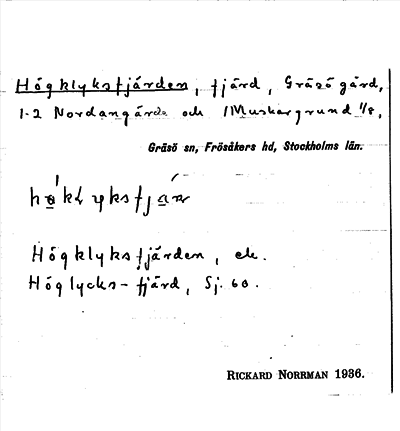 Högklyksfjärden, fjärd, Gräsö gård,
1-2 Nordangärde och 1 Muskargrund 1/8,
Gräsö sn, Frösåkers hd, Stockholms län.
Högklyksfjärden, ek.
Höglycks-fjärd, Sj. 60.
RICKARD NORRMAN 1936.